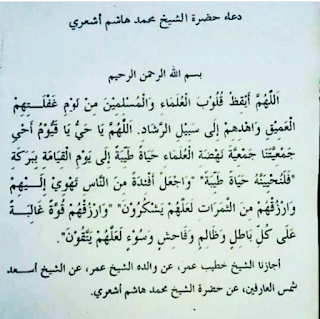 دعاء حضرة الشيخ محمد هاشم أشعري
بسم الله الرحمن الرحيم
اَللّٰهُمَّ أَيْقِظْ قُلُوْبَ الْعُلَمَاءِ وَالْمُسْلِمِيْنَ مِنْ نَوْمِ غَفْلَتِهِمْ
الْعَمِيْقِ وَاهْدِهِمْ إِلَى سَبِيْلِ الرَّشَادِ. اَللّٰهُمَّ يَا حَيُّ يَا قَيُّوْمُ أَحْيِ
جَمْعِيَّتَنَا جَمْعِيَّةَ نَهْضَةِ الْعُلَمَاءِ حَيَاةً طَيِّبَةً إِلَى يَوْمِ الْقِيَامَةِ بِبَرَكَةِ
"فَلَنُحْيِيَنَّهُ حَيَاةً طَيِّبَةً" "وَاجْعَلْ أَفْئِدَةً مِنَ النَّاسِ تَهْوِيْ إِلَيْهِمْ
وَارْزُقْهُمْ مِنَ الثَّمَرَاتِ لَعَلَّهُمْ يَشْكُرُوْنَ" "وَارْزُقْهُمْ قُوَّةً غَالِبَةً
عَلَى كُلِّ بَاطِلٍ وَظَالِمٍ وَفَاحِشٍ وَسُوْءٍ لَعَلَّهُمْ يَتَّقُوْنَ".
أجازنا الشيخ خطيب عمر، عن والده الشيخ عمر، عن الشيخ أسعد
شمس العارفين، عن حضرة الشيخ محمد هاشم أشعري.